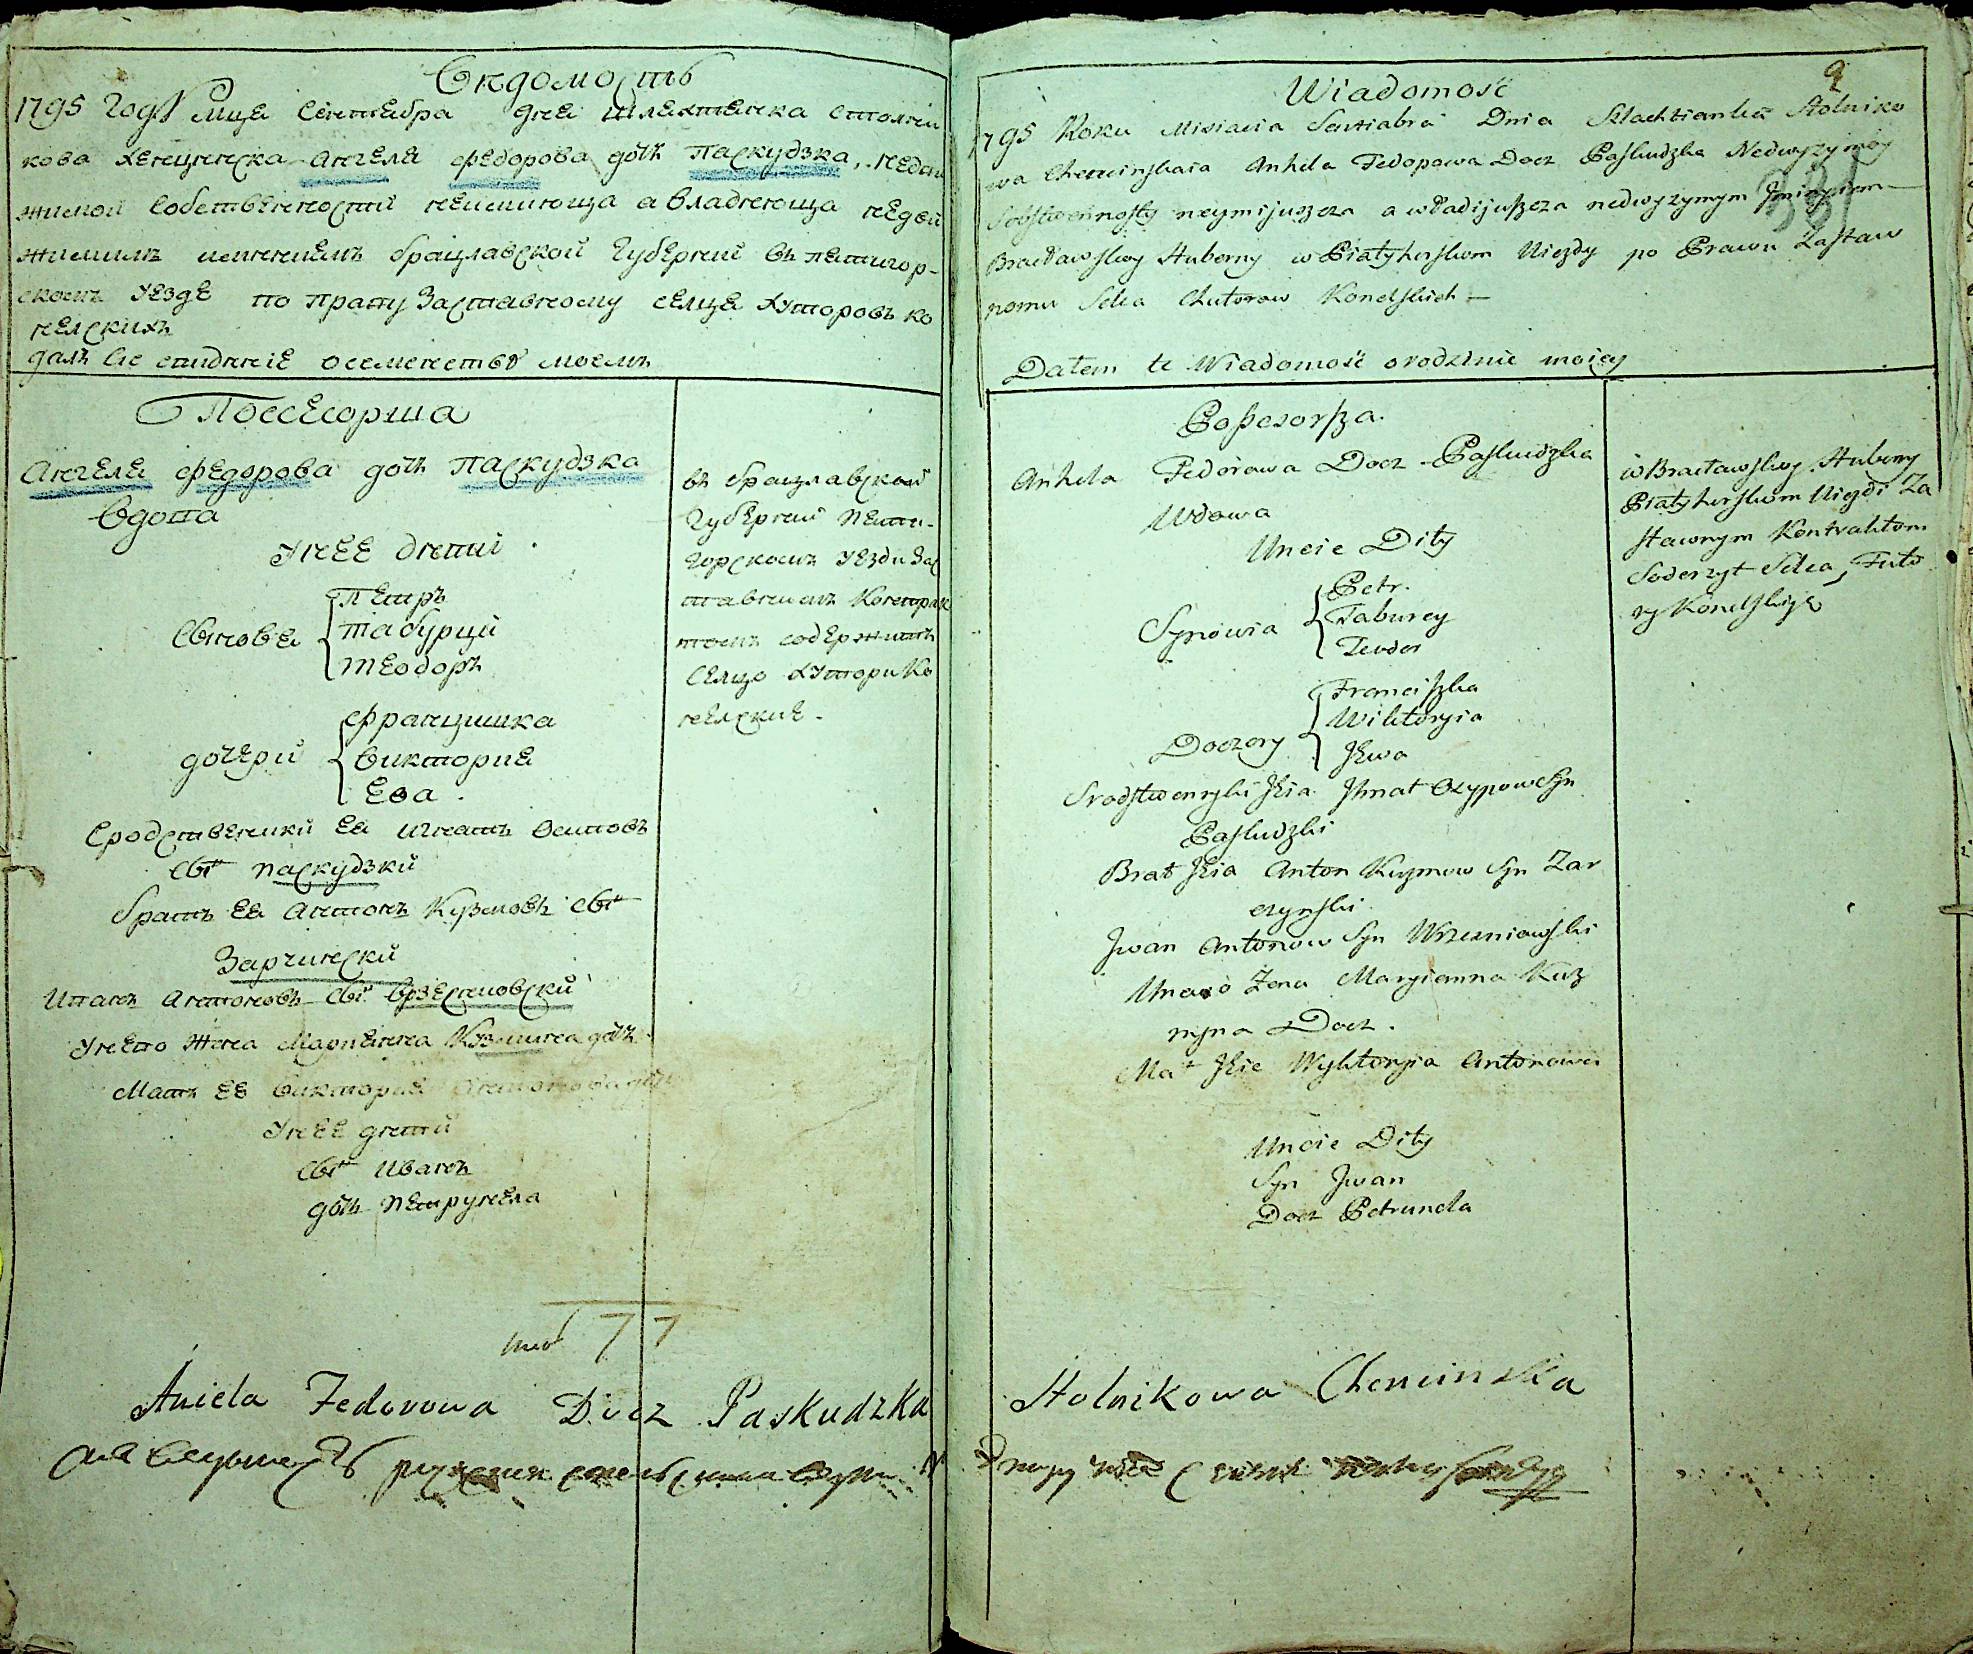 Ведомость
1795 Году мца Сентебра дня шляхтенка столни
кова Хенцинска Ангеля Федорова дочь Паскудзка, недви
жимой собственности неимиюща а владеюща недви
жимимъ имениемъ брацлавской губернии въ петигор-
скомъ уезде по праву заставному селца хуторовъ ко
нелскихъ
далъ сие видение о семенстве моемъ
Поссесорша
Ангеля Федорова дочь Паскудзка
вдова
у нее дети
Синове
Петръ
Табурци
Теодоръ
дочери
Францишка
Виктория
Ева
Сродственики ея Игнатъ Осиповъ
сынъ Паскудзки
братъ ея Антонъ Кузмовъ сынъ
Зарчински
Иванъ Антоновъ сынъ Врзесневски
у него жена Мариенна Кузмина дочь
Мать ее Виктория Антонова дочь
у нее дети
сынъ Иванъ
дочь Петрунела
въ брацлавской
губернии пети-
горскомъ уезди зас
тавнимъ контрак
томъ содержитъ
селцо хутори ко
нелские
77
Aniela Fedorowa Docz Paskudzka
9
Wiadomość
1795 Roku Misiacia Sentiabra Dnia Szlachtianka Stolniko
wa Chencinskaia Anhela Fedorowa Docz Paskudzka Nedwyzymoy
Sobstwennosty neymijuszcza a władijuszcza nedwyzymym Jmieniem
Bracławskoy Huberny w Piatyhorskom Uiezdy po Prawu Zastaw
nomu Selca Chutorow Konelskich
381
Dałem te Wiadomość o rodzinie moiey
Possesorsza.
Anhela Fedorowa Docz Paskudzka
Wdowa
Uneie Dity
Synowia
Petr.
Taburcy
Teodor
Doczery
Franciszka
Wiktoryia
Jewa
Srodstwennyki Jeia Jhnat Ozypow Syn
Paskudzki
Brat Jeia Anton Kuzmow Syn Zar
czynski
Jwan Antonow Syn Wrzesniowski
Uneho Zena Maryianna Kuz
myna Docz.
Mat Jeie Wyktoryia Antonowa
Uneie Dity
Syn Jwan
Docz Petrunela
w Bracławskoy Huberny
Piatyhorskom Uiezdi Za
stawnym Kontraktom
Soderzyt Selca, Futo
ry Konelskije
Stolnikowa Chencinska